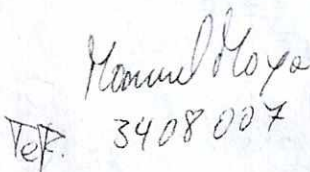 Manuel Moya
Telf. 3408007